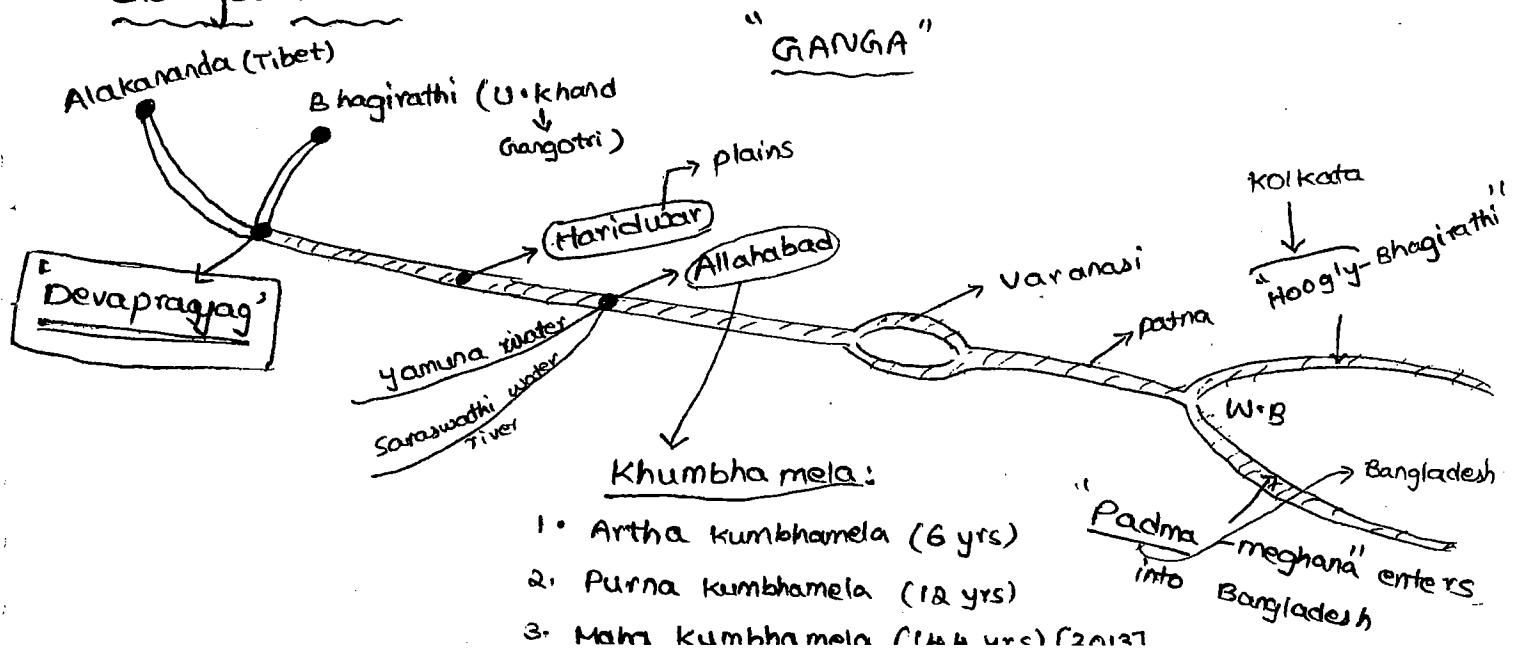 "GANGA"
Alakananda (Tibet)
Bhagirathi (U.khand
Gangotri)
plains
Haridwar
Allahabad
Devapragyag'
yamuna water
Saraswathi water
river
Varanasi
patna
Kolkata
"Hoogly-Bhagirathi"
W.B
Bangladesh
"Padma-meghana" enters
into Bangladesh
Khumbha mela:
1. Artha kumbhamela (6 yrs)
2. Purna kumbhamela (12 yrs)
3. Maha kumbhamela (144 yrs) [2013]